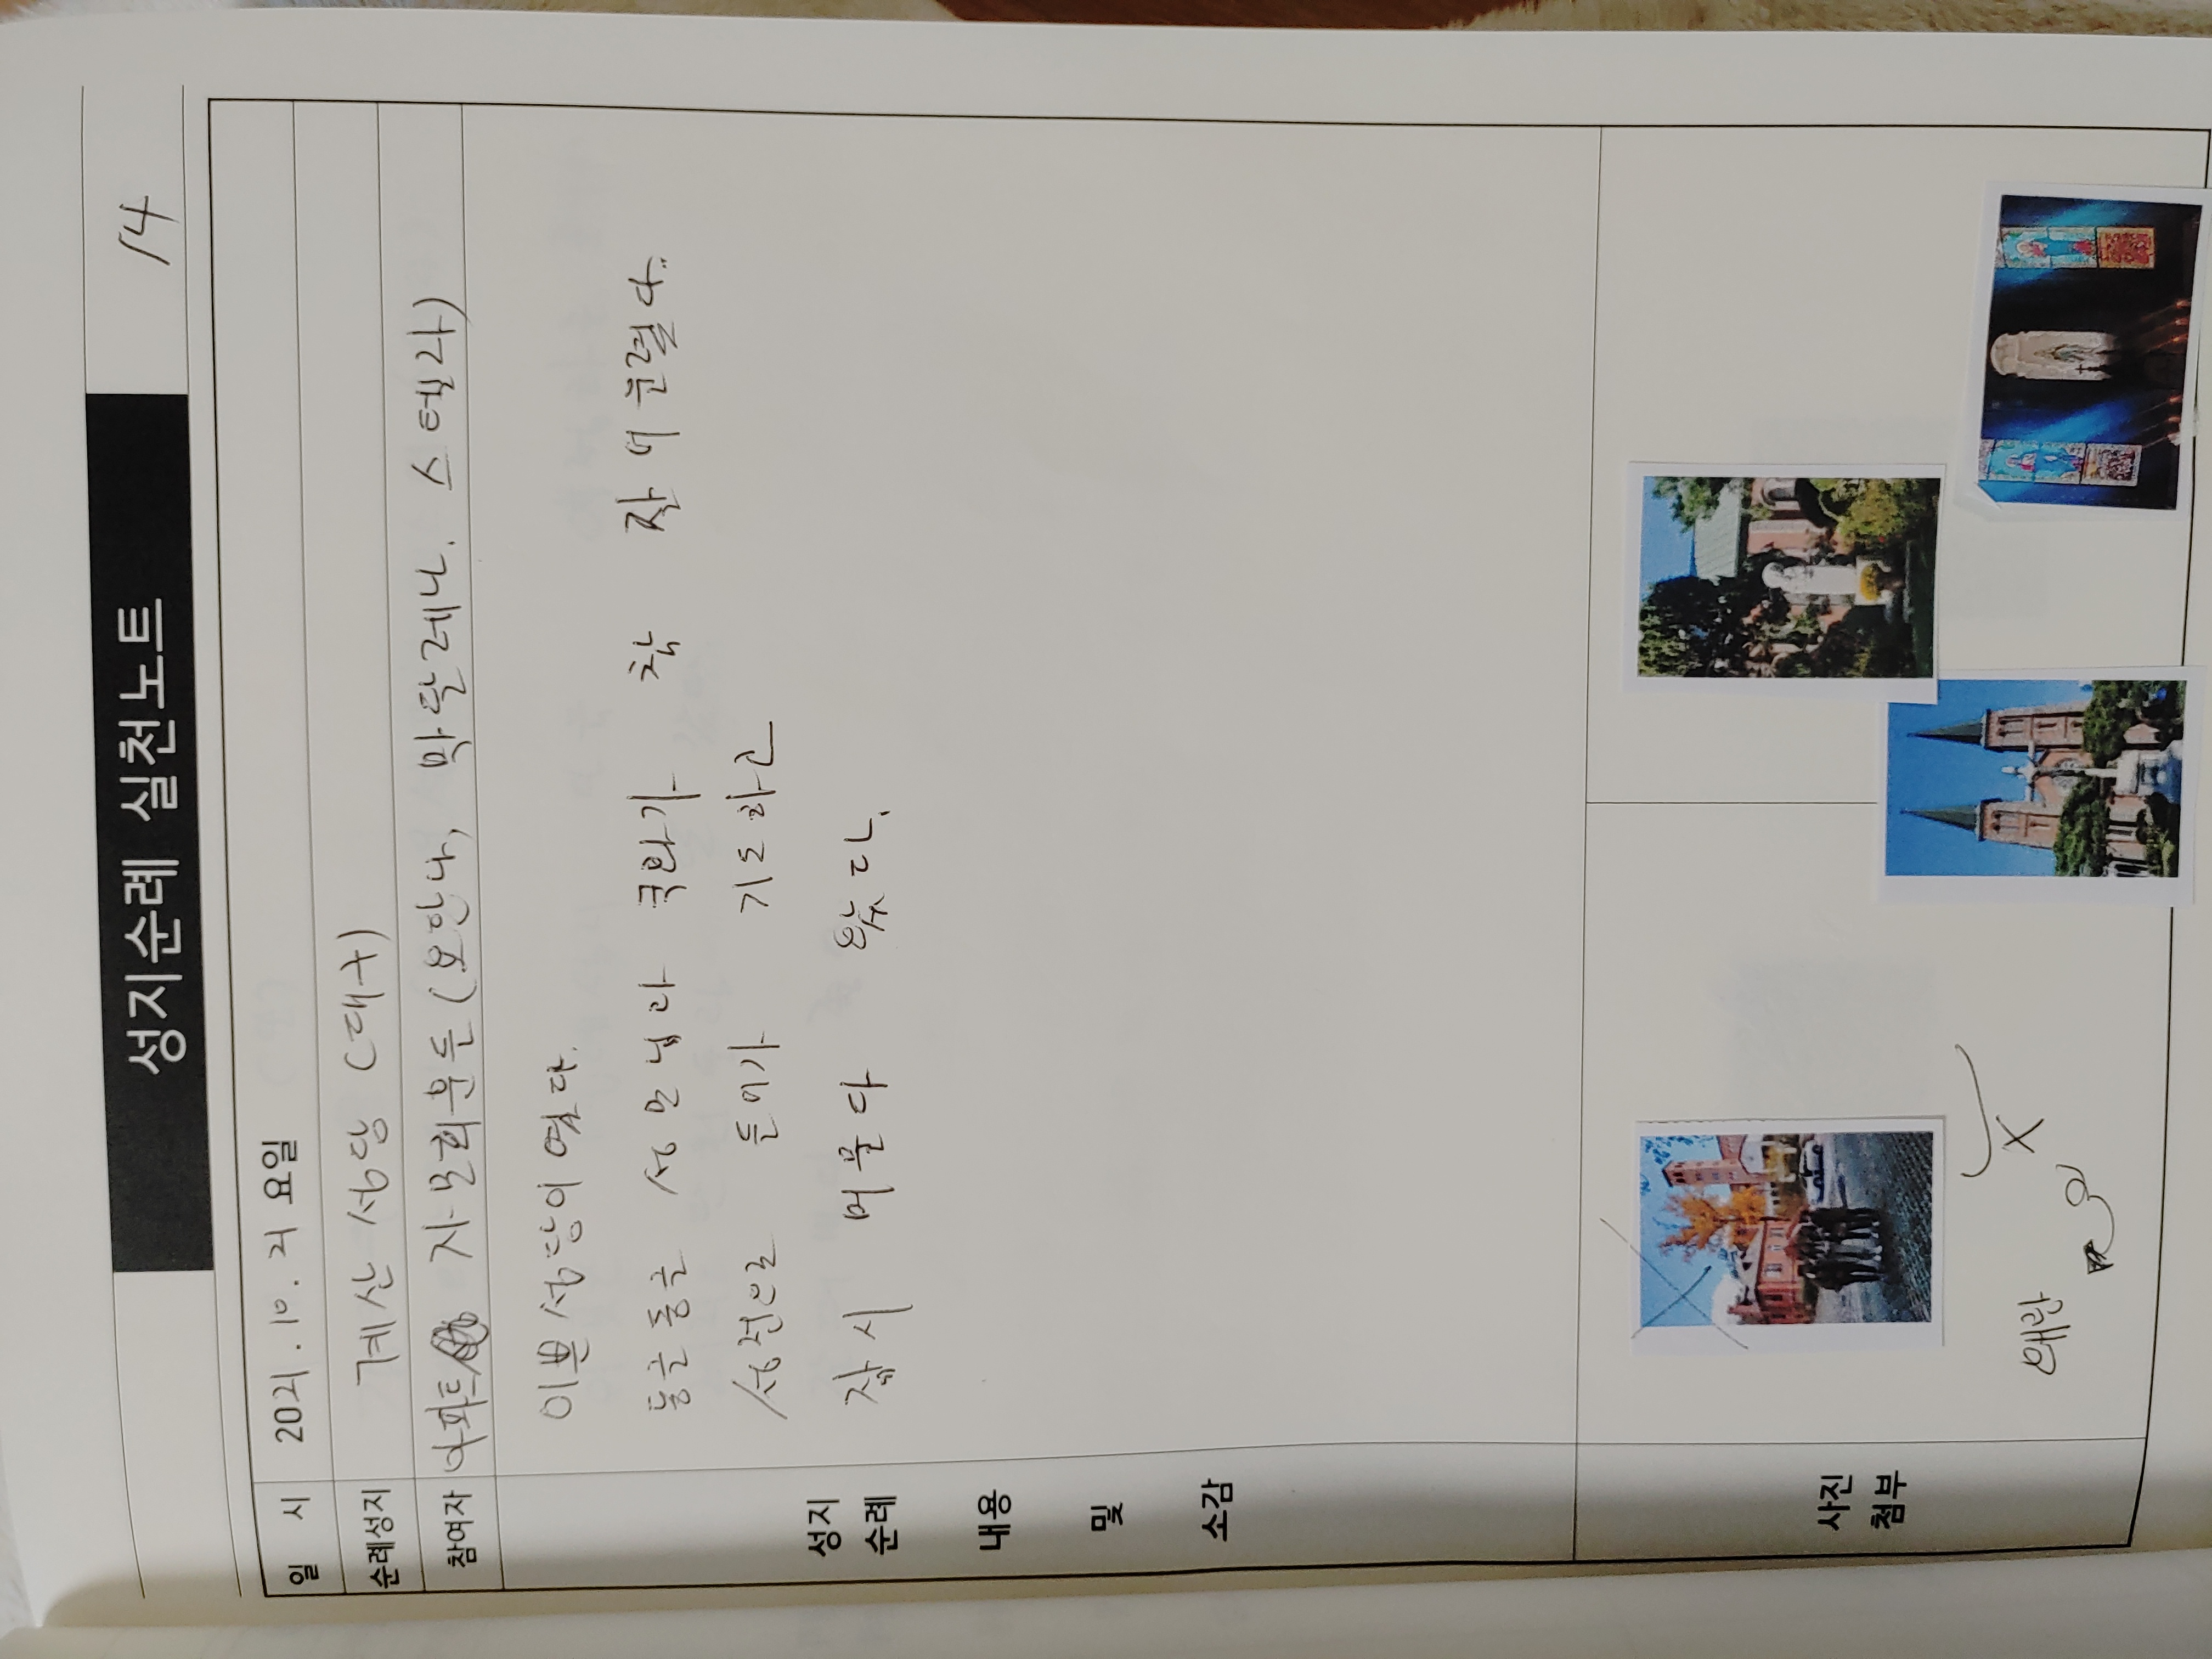 성지순례 실천노트
14
일 시
2021. 10. 21 요일
순례성지
계산 성당 (대구)
참여자
아파트 자모회분들 (요안나, 막달레나. 스텔라)
성지
순례
내용
및
소감
이쁜 성당이였다.
둥글둥글 성모님과 국화가 참 잘 어울렸다..
성전으로 들어가 기도하고
잠시 머물다 왔다.
사진
첨부
X
왜관